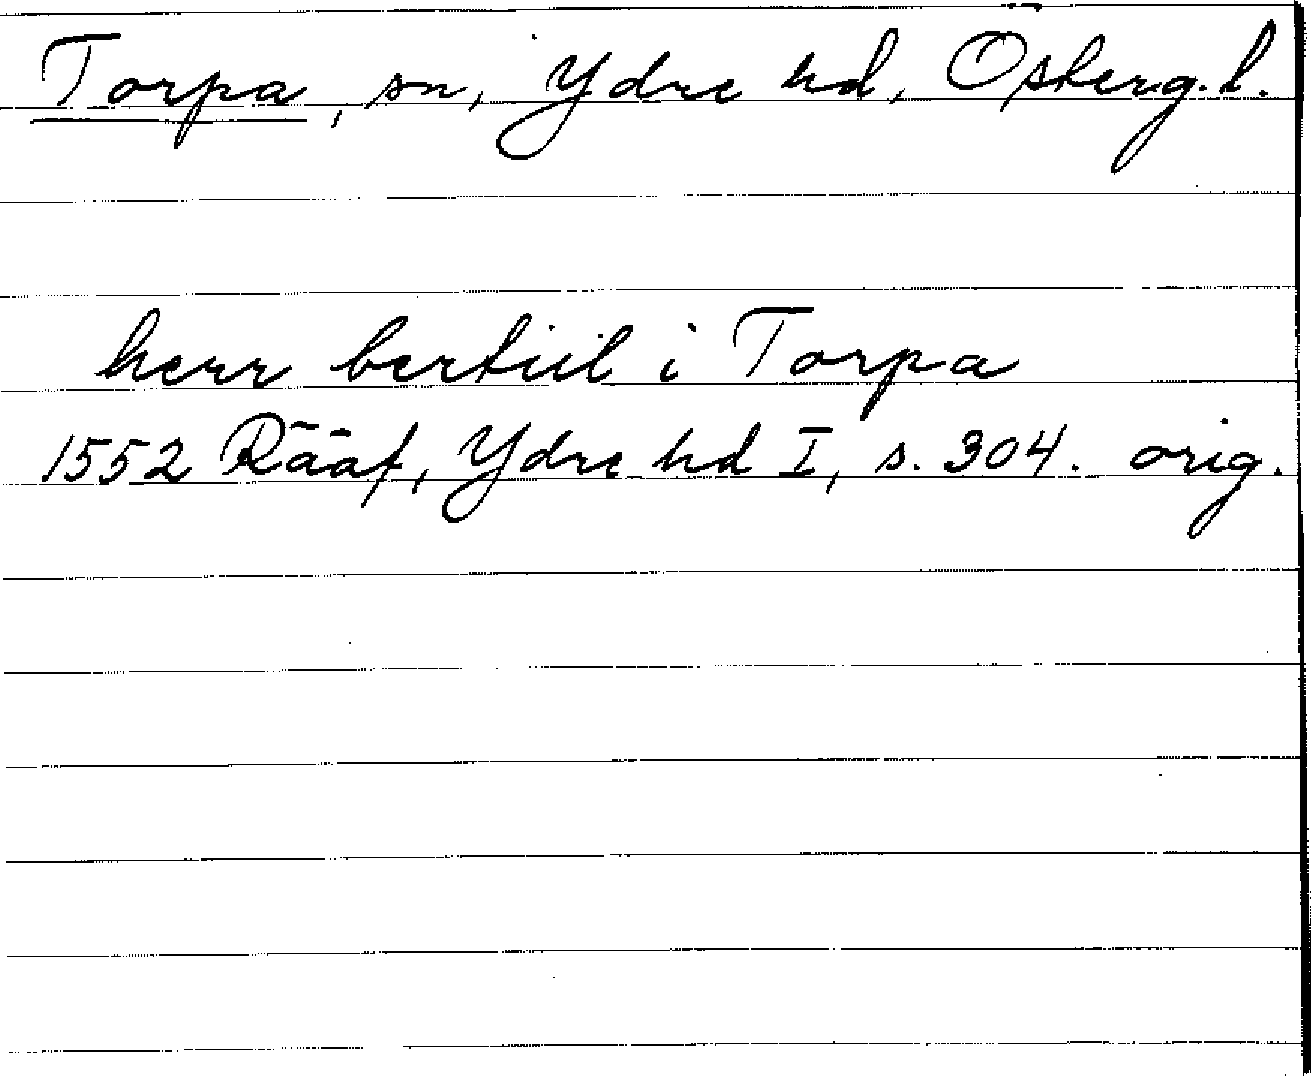 Torpa, sn, Ydre hd, Österg. l.
herr bertiil i Torpa
1552 Rääf, Ydre hd I, s. 304. orig.